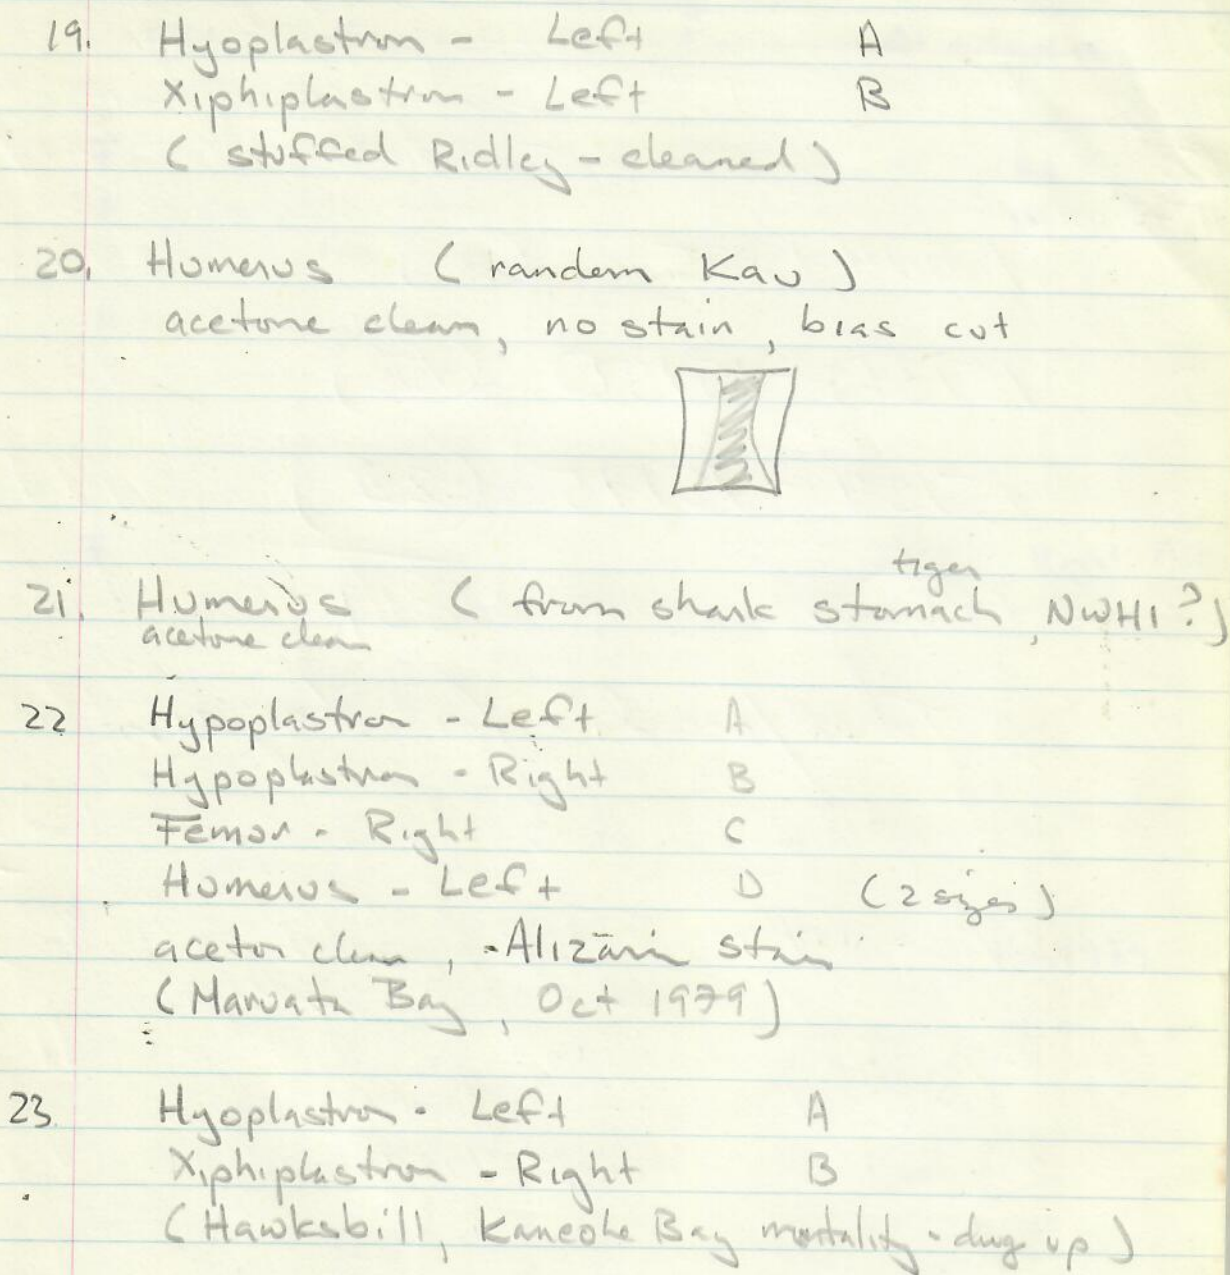 19. Hyoplastron - Left A
Xiphiplastron - Left B
( stuffed Ridley - cleaned )
20. Humerus ( random Kau )
acetone clean, no stain, bias cut
tiger
21. Humerus ( from shark stomach, NWHI ? )
acetone clean
22 Hypoplastron - Left A
Hypoplastron - Right B
Femor - Right C
Humerus - Left D ( 2 sizes )
aceton clean, - Alizarin stain
( Maruata Bay, Oct 1979 )
23. Hyoplastron - Left A
Xiphiplastron - Right B
( Hawksbill, Kaneohe Bay mortality - dug up )